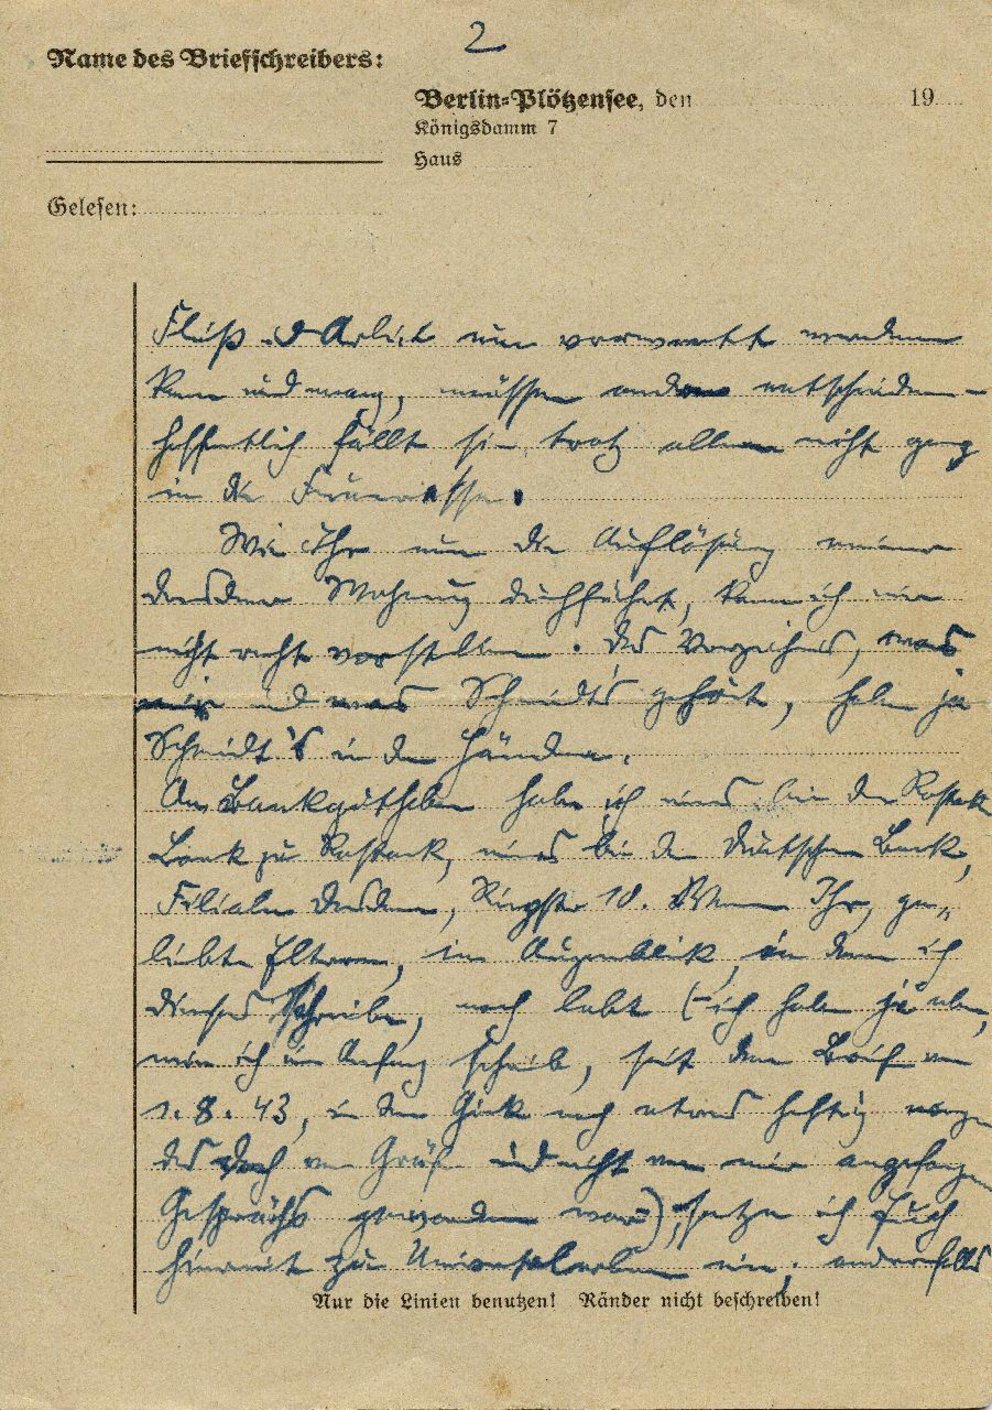 2
Name des Briefschreibers:
Berlin-Plötzensee, den 19
Königsdamm 7
Haus
Gelesen:
Fleiß u. Arbeit nun verwertet werden
kann und mag, müssen andere entscheiden –
hoffentlich fällt sie trotz allem nicht ganz
in die
Wie Ihr nun die Auflösung meiner
Dresdner Wohnung durchführt, kann ich mir
nicht recht vorstellen. Das Verzeichnis, was
mir und was Schmidt's gehört, haben ja
Schmidt's in den Händen.
An Bankguthaben habe ich eines bei der Rostock
Bank zu Rostock, eines bei der Deutschen Bank,
Filiale Dresden, Ringstr 10. Wenn Ihr, ge„
liebte Eltern, im Augenblick, in dem ich
dieses schreibe, noch lebt (– ich habe ja eben,
wie ich im Anfang schrieb, seit dem Brief vom
1. 8. 43, in dem noch etwas heftig wegen
des doch von und nicht von mir angefangenen
Gesprächs geworden war –), setze ich Euch
hiermit zu Universalerben ein; andernfalls
Nur die Linien benutzen! Ränder nicht beschreiben!